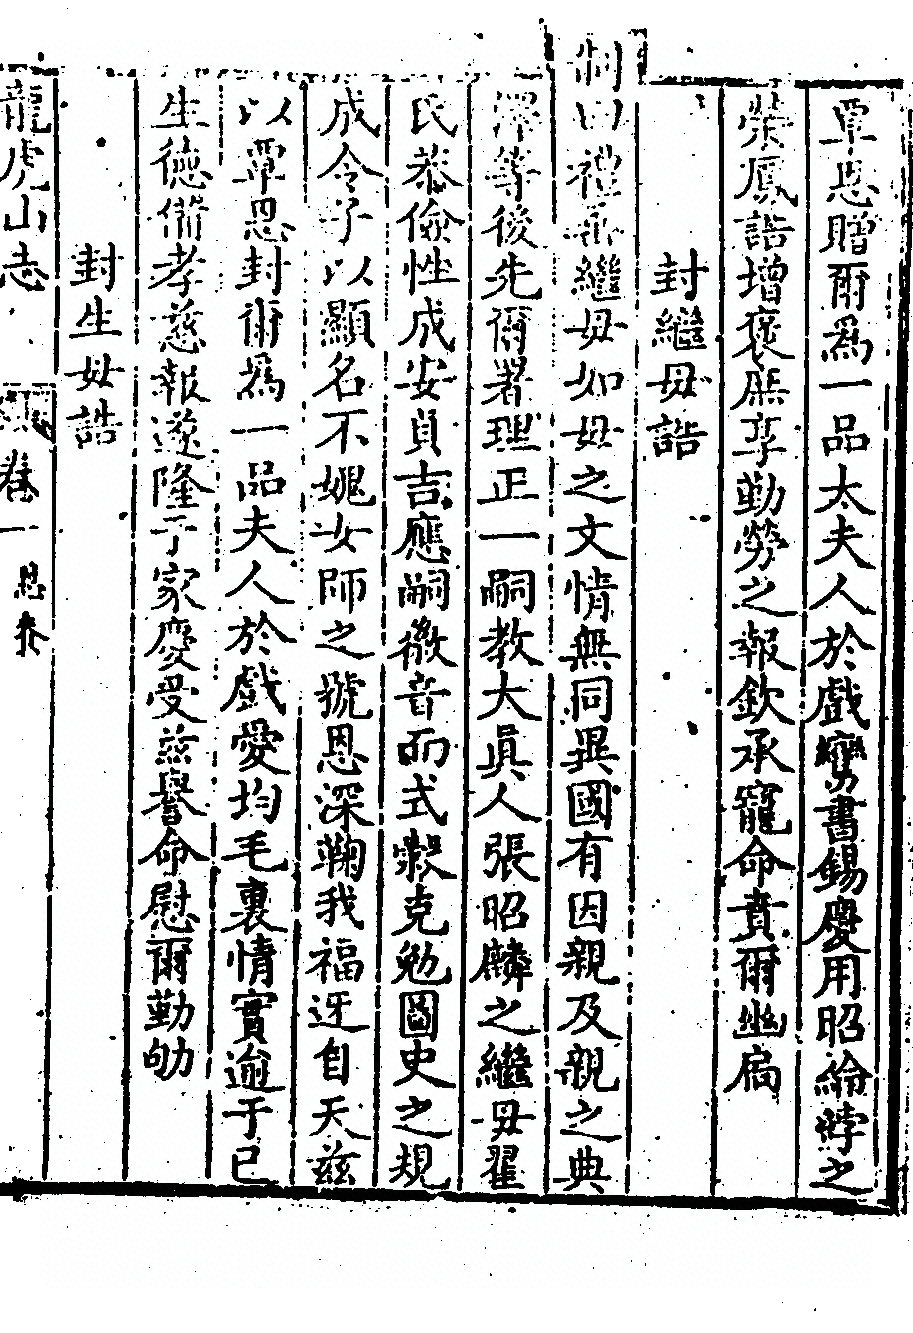 覃恩贈爾爲一品太夫人於戲鸞書錫慶用昭綸綍之
榮鳳誥增褒庶享勤勞之報欽承寵命賁爾幽扃
封繼母誥
制曰禮無繼母如母之文情無同異國有因親及親之典
澤等後先爾署理正一嗣教大眞人張昭麟之繼母翟
氏恭儉性成安貞吉應嗣徽音而式穀克勉圖史之規
成令子以顯名不媿女師之號恩深鞠我福迓自天茲
以覃恩封爾爲一品夫人於戲愛均毛裏情實逾于己
生德備孝慈報遂隆于家慶受茲譽命慰爾勤劬
封生母誥
龍虎山志
卷一